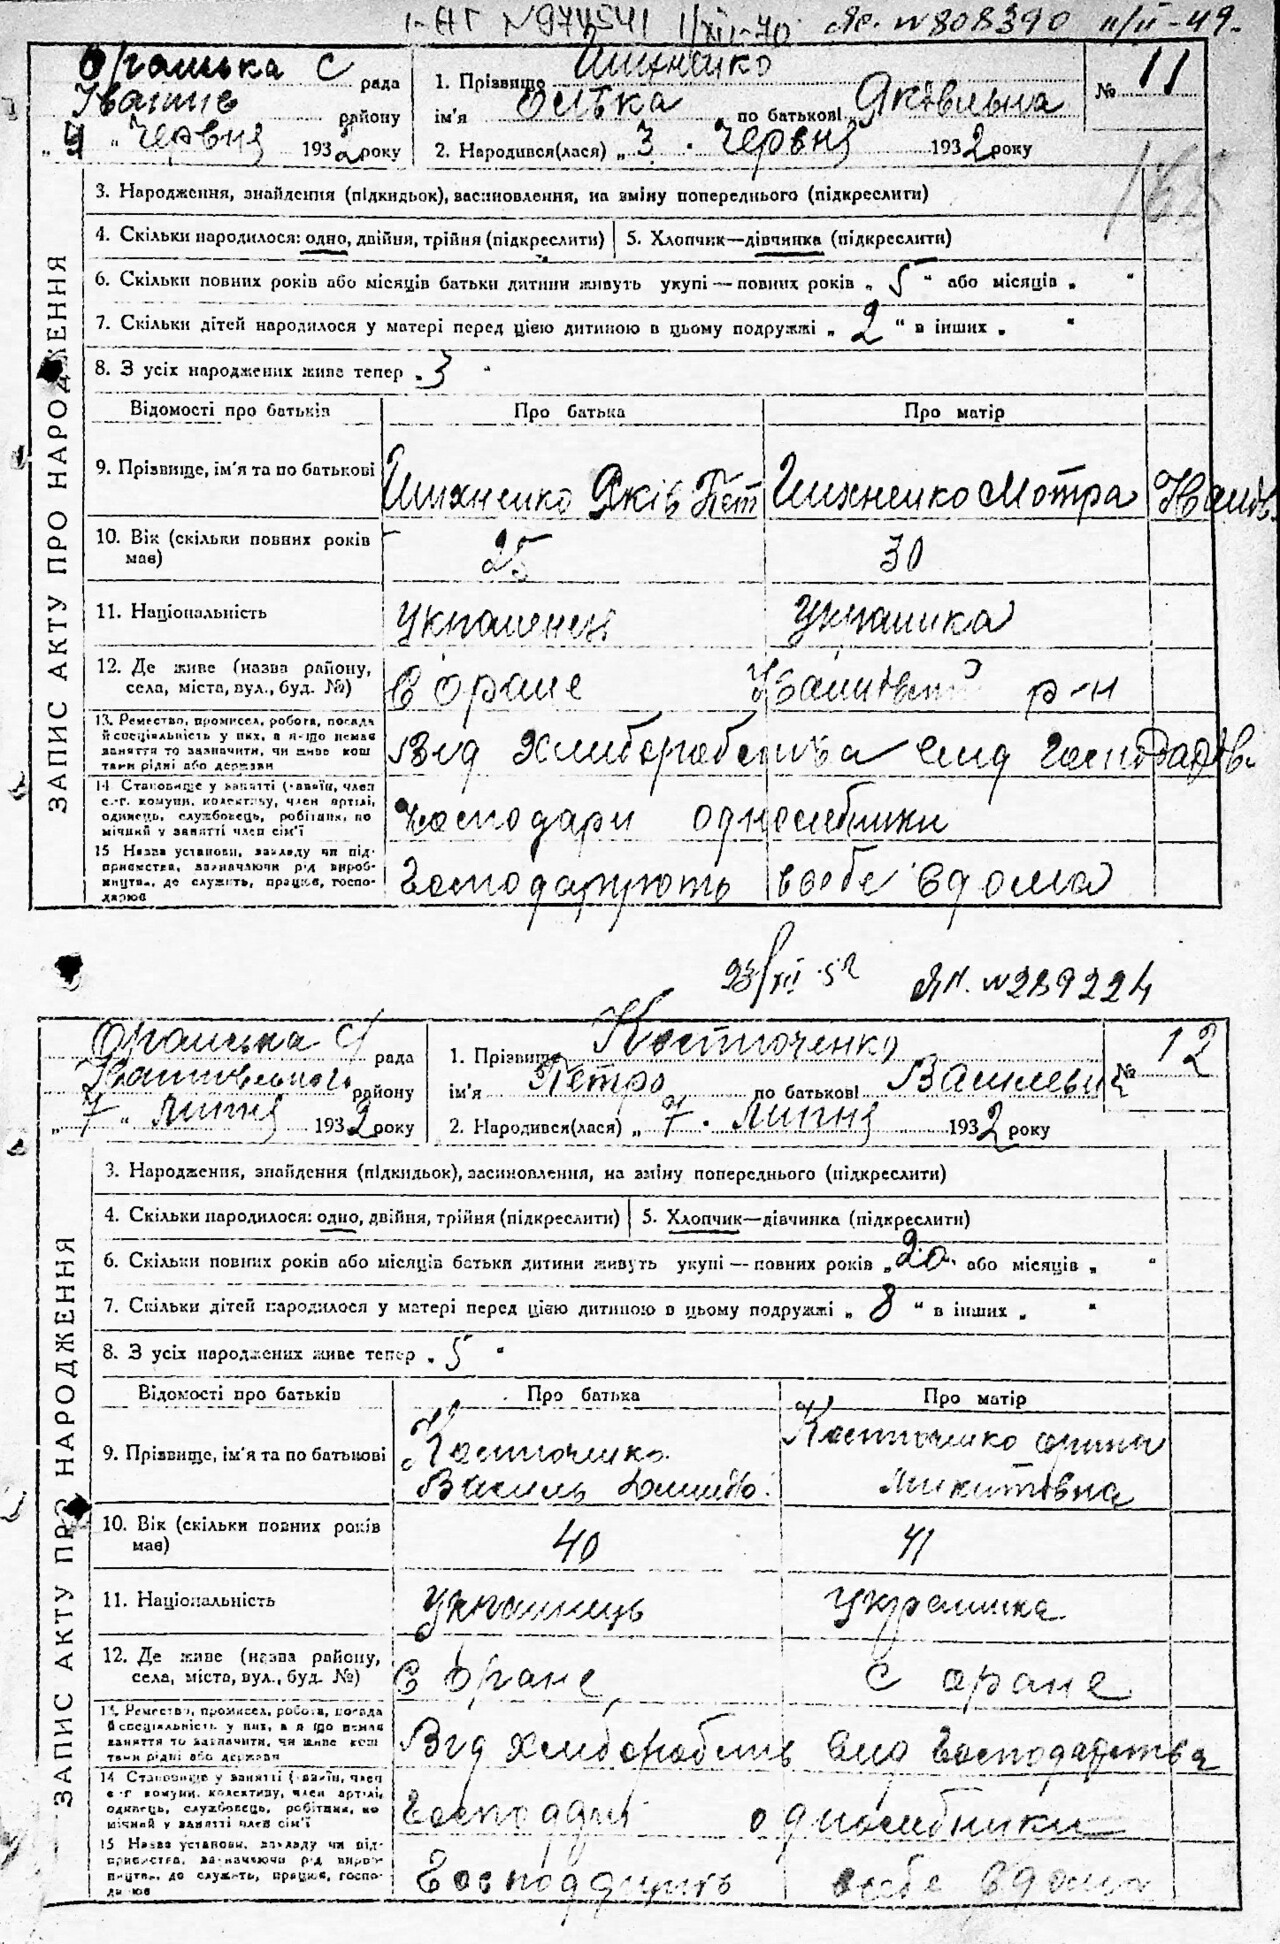 І-АГ N 974541 1/XII-70 Яс. N 808390 11/II-49.
Оранська С рада
Іванків району
"4" Червня 1932 року
1. Прізвище
ім'я Ольга по батькові Яківльна
2. Народився(лася) „ 3 . Червня 1932 року
№ 11
ЗАПИС АКТУ ПРО НАРОДЖЕННЯ
3. Народження, знайдення (підкидьок), засиновлення, на зміну попереднього (підкреслити)
4. Скільки народилося: одно, двійня, трійня (підкреслити) 5. Хлопчик—дівчинка (підкреслити)
6. Скільки повних років або місяців батьки дитини живуть укупі — повних років „ 5 " або місяців „ "
7. Скільки дітей народилося у матері перед цією дитиною в цьому подружжі „ 2 " в інших „ "
8. З усіх народжених живе тепер „ 3 "
Відомості про батьків Про батька Про матір
9. Прізвище, ім'я та по батькові Яків Пет Мотра
10. Вік (скільки повних років має) 25 30
11. Національність Українець Українка
12. Де живе (назва району, села, міста, вул., буд. №) С Оране р-н
13. Ремество, промисел, робота, посада
й спеціяльність у них, а якщо немає
заняття то зазначити, чи живе кош
тами рідні або держави
Від
14 Становище у занятті (хазяїн, член
с.-г. комуни, колективу, член артілі,
одинець, службовець, робітник, по
мічний у занятті член сім'ї
Господари односібники
15 Назва установи, закладу чи під-
приємства, зазначаючи рід вироб-
ництва, де служить, працює, госпо-
дарює
Господарують в себе вдома
23/XII-52 ЯП. N 289224
Оранська С/ рада
району
„ 7 " липня 1932 року
1. Прізвище Костюченко
ім'я Петро по батькові Василевич
2. Народився(лася) „ 7 . липня 1932 року
№ 12
ЗАПИС АКТУ ПРО НАРОДЖЕННЯ
3. Народження, знайдення (підкидьок), засиновлення, на зміну попереднього (підкреслити)
4. Скільки народилося: одно, двійня, трійня (підкреслити) 5. Хлопчик—дівчинка (підкреслити)
6. Скільки повних років або місяців батьки дитини живуть укупі — повних років „ 20 . або місяців „ "
7. Скільки дітей народилося у матері перед цією дитиною в цьому подружжі „ 8 " в інших „ "
8. З усіх народжених живе тепер „ 5 "
Відомості про батьків Про батька Про матір
9. Прізвище, ім'я та по батькові Костюченко Василь Костюченко Микитовна
10. Вік (скільки повних років має) 40 41
11. Національність Українець Українка
12. Де живе (назва району, села, міста, вул., буд. №) С Оране, С Оране
13. Ремество, промисел, робота, посада
й спеціяльність у них, а якщо немає
заняття то зазначити, чи живе кош
тами рідні або держави
Від
14 Становище у занятті (хазяїн, член
с.-г. комуни, колективу, член артілі,
одинець, службовець, робітник, по
мічний у занятті член сім'ї
односібники
15 Назва установи, закладу чи під-
приємства, зазначаючи рід вироб-
ництва, де служить, працює, госпо-
дарює
себе вдома